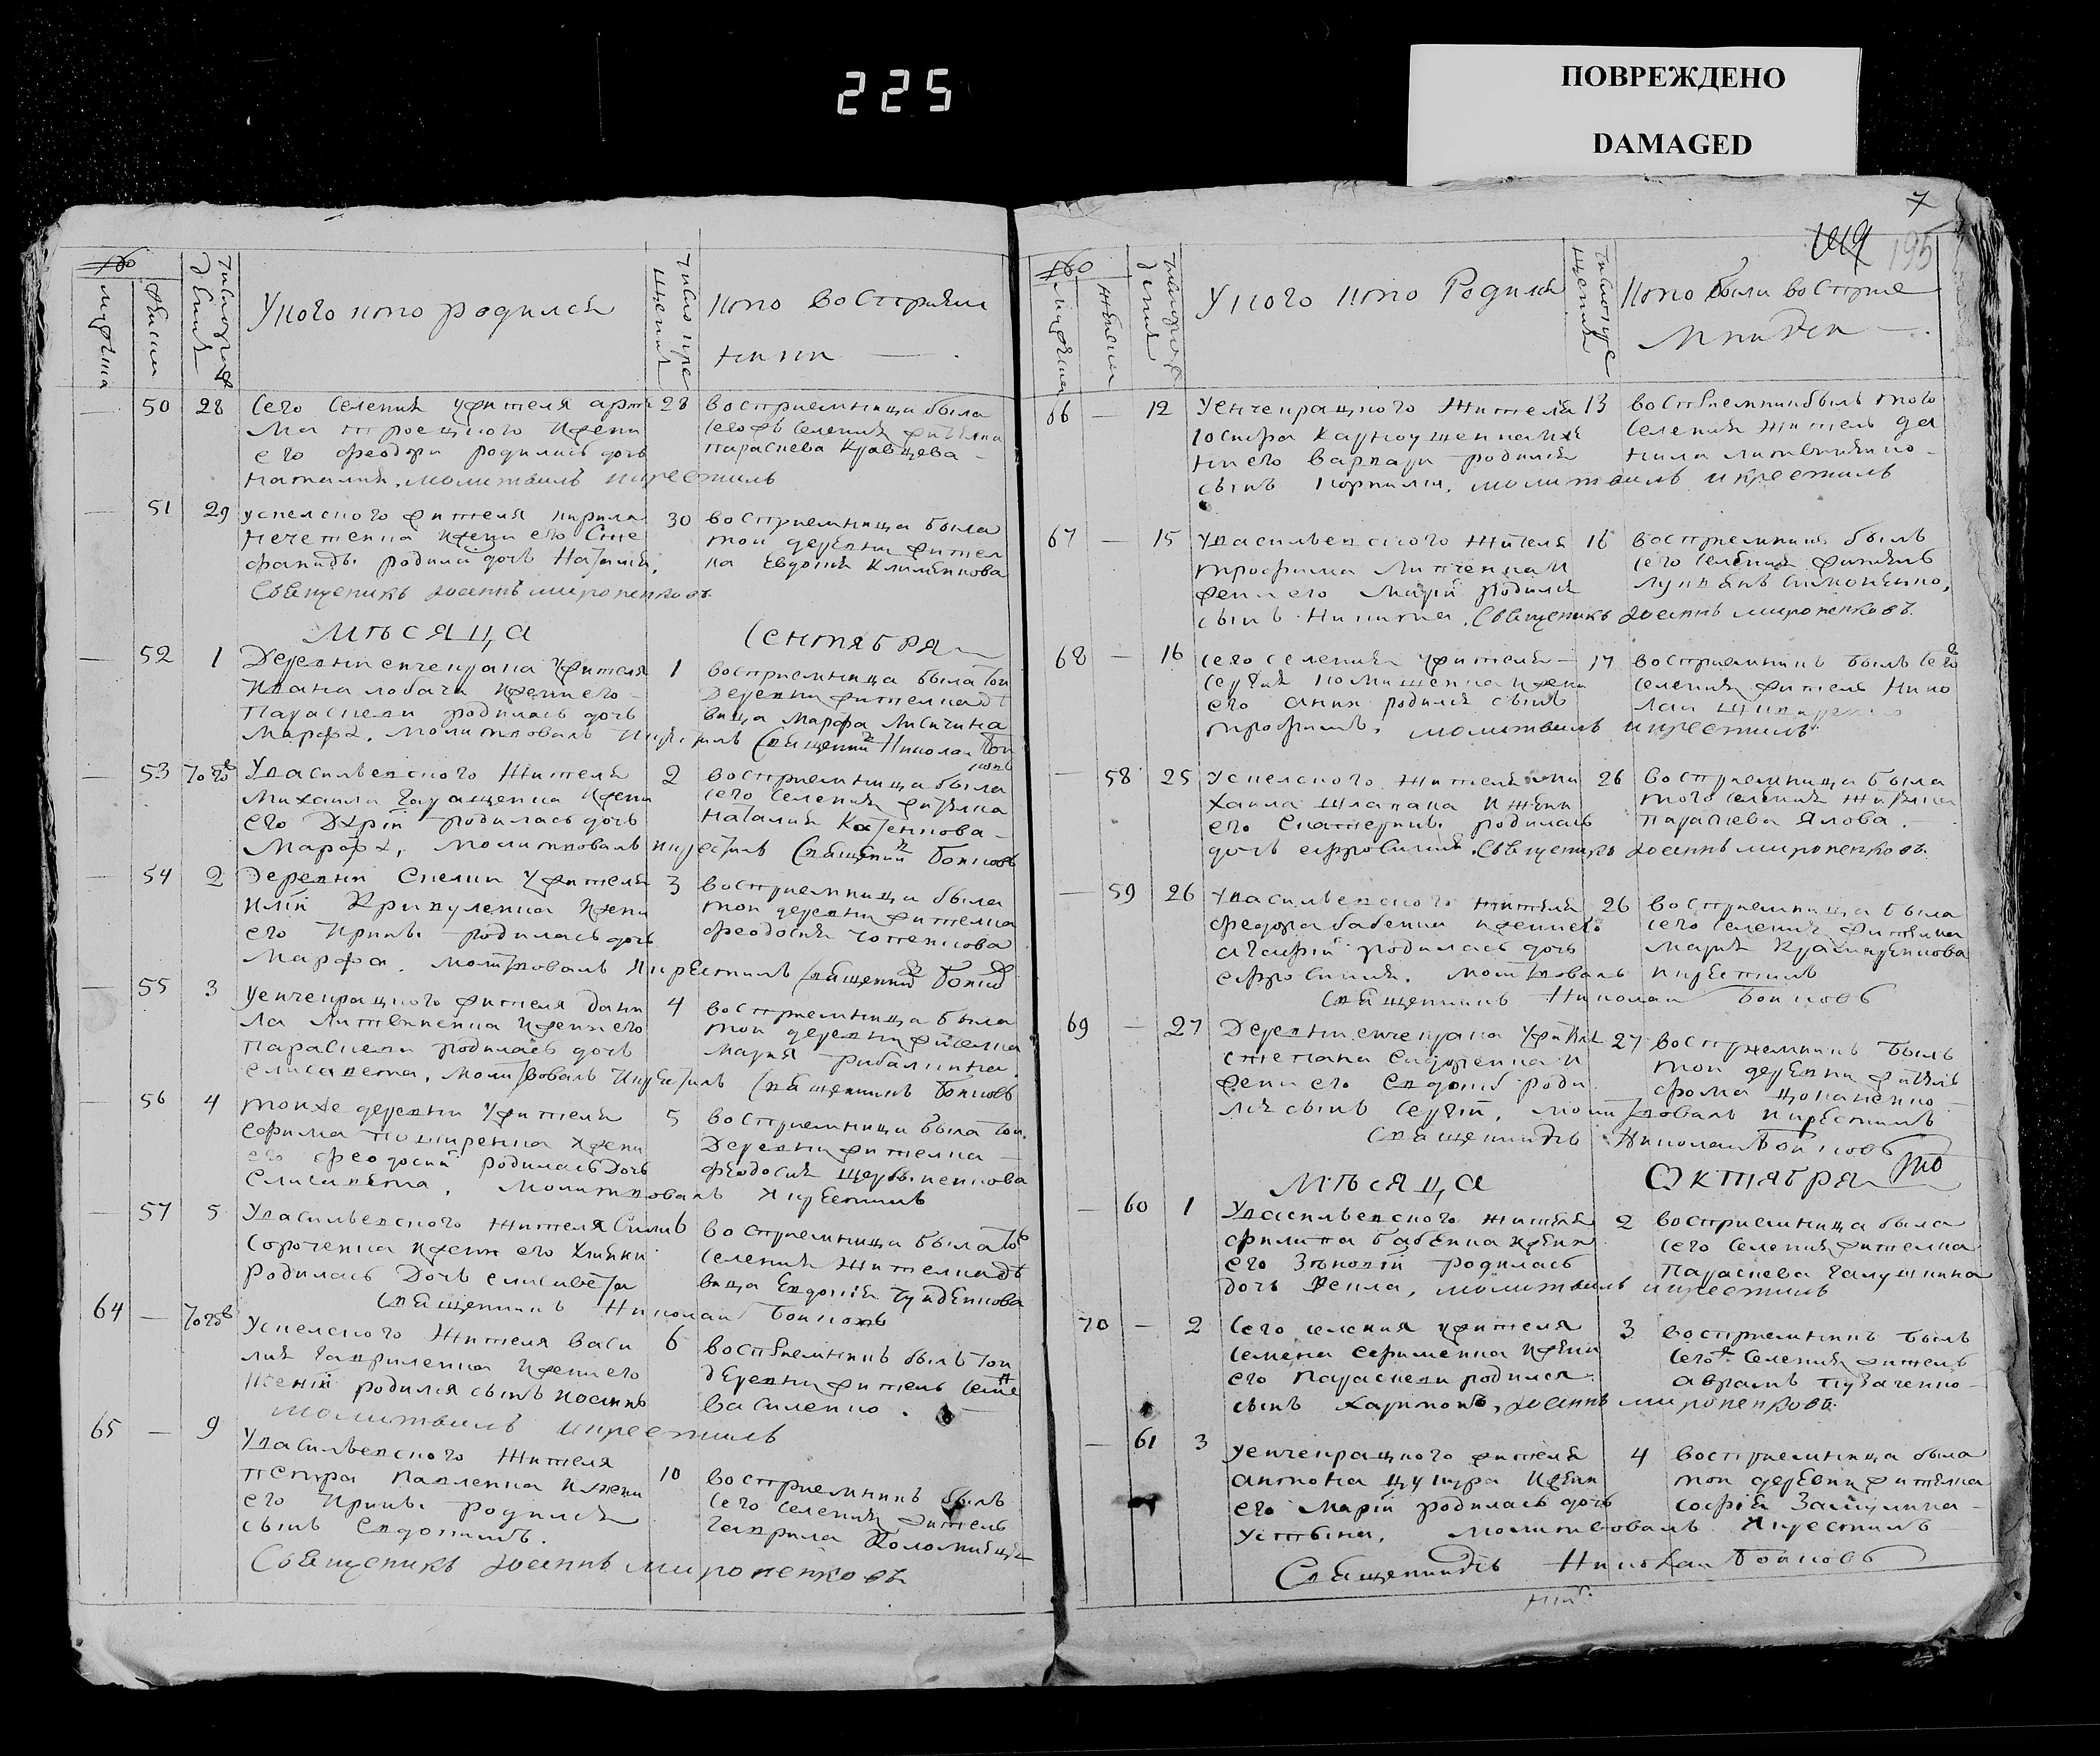 225
ПОВРЕЖДЕНО
DAMAGED
7
195
№
мужеска
женски
число рож
дения
У кого кто родился
число кре
щения
кто восприем
ники
50 28 Сего селения жителя арте
ма троецкого и жены
его феодоры родилась дочь
наталия, молитвилъ и крестилъ
28 восприемница была
сего же селения жителка
параскева кравцева
51 29 успелского жителя кирила
нечетенка и жены его Сте
фаниды родилась дочь Наталия,
Священникъ Иоаннъ мироненковъ
30 восприемница была
той деревни жител
ка Евдокия Клименкова
Мѣсяца Сентября
52 1 Деревни енчекрака жителя
Ивана лобача и жены его
Параскеви родилась дочь
Марфа, молитвовалъ и крестилъ Священникъ Николай Бойковъ
1 восприемница была той
Деревни жителка дѣ
вица Марфа Лисичина
53 того Увасильевского жителя
Михаила Гаращенка и жены
его Дарiи родилась дочь
Марфа, молитвовалъ и крестилъ Священникъ Бойковъ
2 восприемница была
сего селения жителка
наталия
54 2 Деревни Спелки жителя
Илiи Кривуленка и жены
его Ирины родилась дочь
Марфа, молитвовалъ и крестилъ Священникъ Бойковъ
3 восприемница была
той деревни жителка
феодосия
55 3 Уенчекрацкого жителя дани
ла Литвиненка и жены его
параскеви родилась дочь
елисавета, молитвовалъ и крестилъ Священникъ Бойковъ
4 восприемница была
той деревни жителка
Мария рибалкина
56 4 тойже деревни жителя
ефима поширенка и жены
его феодосии родилась Дочь
Елисавета, молитвовалъ и крестилъ
5 восприемница была той
Деревни жителка
феодосия щербиненкова
57 5 Увасильевского жителя
Сороченка и жены его
родилась Дочь елисавета
Священникъ Николай Бойковъ
восприемница была того
селения жителка дѣ
вица Евдокия
64 того Успелского жителя васи
лия Гавриленка и жены его
Ксенiи родился сынъ иоаннъ
молитвилъ и крестилъ
6 восприемникъ былъ той
деревни житель
василенко
65 9 Увасильевского жителя
петра павленка и жены
его Ирины родился
сынъ Евдокимъ.
Священникъ Иоаннъ мироненковъ
10 восприемникъ былъ
сего селения житель
Гаврила Коломиецъ
№
мужески
женски
число рож
дения
У кого кто Родился
число кре
щения
Кто были восприе
мники
66 12 Уенчекрацкого жителя
и же
ни его варвари родился
сынъ корнилий, молитвилъ и крестилъ
13 восприемникъ былъ того
селения житель да
нила литвиненко
67 15 Увасильевского жителя
трофима Литченка и
жени его Марiи родился
сынъ Никита, Священникъ Иоаннъ мироненковъ
16 восприемникъ былъ
сего селения житель
лукиянъ симоненко,
68 16 сего селения жителя
сергия и жены
его анни родился сынъ
трофимъ, молитвилъ и крестилъ
17 восприемникъ былъ сего
селения житель Нико
лай
58 25 Успелского жителя ми
хаила шлапака и жены
его Екатерины родилась
дочь ефросиния, Священникъ Иоаннъ мироненковъ.
26 восприемница была
того селения жителка
параскева Ялова.
59 26 Увасильевского жителя
феодора бабенки и жени его
агафiи родилась дочь
ефросиния, молитвовалъ и крестилъ
Священникъ Николай Бойковъ
26 восприемница была
сего селения жителка
Мария Крамаренкова
69 27 Деревни енчекрака жителя
степана Сидоренка и
жени его Евдокiи роди
лся сынъ Сергiй, молитвовалъ и крестилъ
Священникъ Николай Бойковъ
27 восприемникъ былъ
той деревни житель
фома цоканенко
Мѣсяца Октября
60 1 Увасильевского жителя
филипа бабенка и жени
его Зѣновiи родилась
дочь Фекла, молитвилъ и крестилъ
2 восприемница была
сего селения жителка
Параскева Галушкина
70 2 Сего селения жителя
Семена Ефименка и жены
его параскеви родился
сынъ харитонъ, Иоаннъ мироненковъ.
3 восприемникъ былъ
сего селения житель
аврамъ пузаченко
61 3 Уенчекрацкого жителя
антона цуцура и жени
его Марiи родилась дочь
Устина, молитвовалъ и крестилъ
4 восприемница была
той деревни жителка
софия
Священникъ Николай Бойковъ